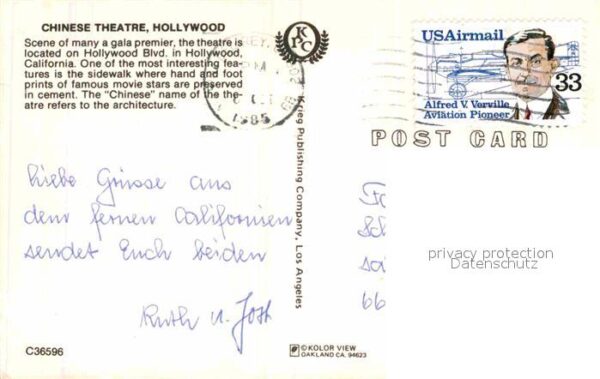 CHINESE THEATRE, HOLLYWOOD
Scene of many a gala premier, the theatre is
located on Hollywood Blvd. in Hollywood,
California. One of the most interesting fea-
tures is the sidewalk where hand and foot
prints of famous movie stars are preserved
in cement. The "Chinese" name of the the-
atre refers to the architecture.
liebe Grüsse aus
dem fernen Californien
sendet Euch beiden
Ruth u. Jost
C36596
KPC
Krieg Publishing Company, Los Angeles
1985
USAirmail
33
Alfred V. Verville
Aviation Pioneer
POST CARD
privacy protection
Datenschutz
66
© KOLOR VIEW
OAKLAND CA. 94623